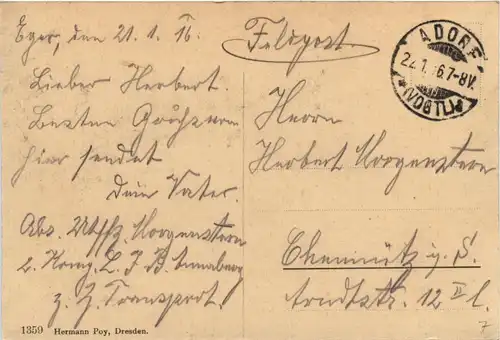 Eger, den 21.1.16.
Lieber Herbert.
Besten Gruß vom
hier sendet
Dein Vater.
Abs. Uffz. Morgenstern
2. Komp. L. I. B. Annaberg
z. Z. Transport!
1359 Hermann Poy, Dresden.
Feldpost.
ADORF
22.1.16.7-8V.
(VOGTL.)
Herrn
Herbert Morgenstern
Chemnitz i. S.
Arndtstr. 12 II l.